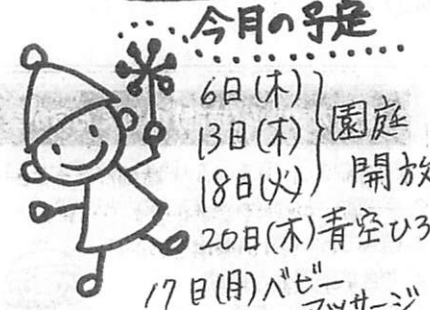 今月の予定
6日(木)
13日(木)
18日(火)
園庭
開放
20日(木)青空ひろ
17日(月)ベビー
マッサージ